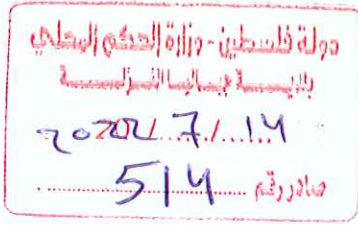 دولة فلسطين - وزارة الحكم المحلي
بلديـــــة جبـاليـا النـــزلـــــة
2022/...7.../...14
صادر رقم ..... 514 .....